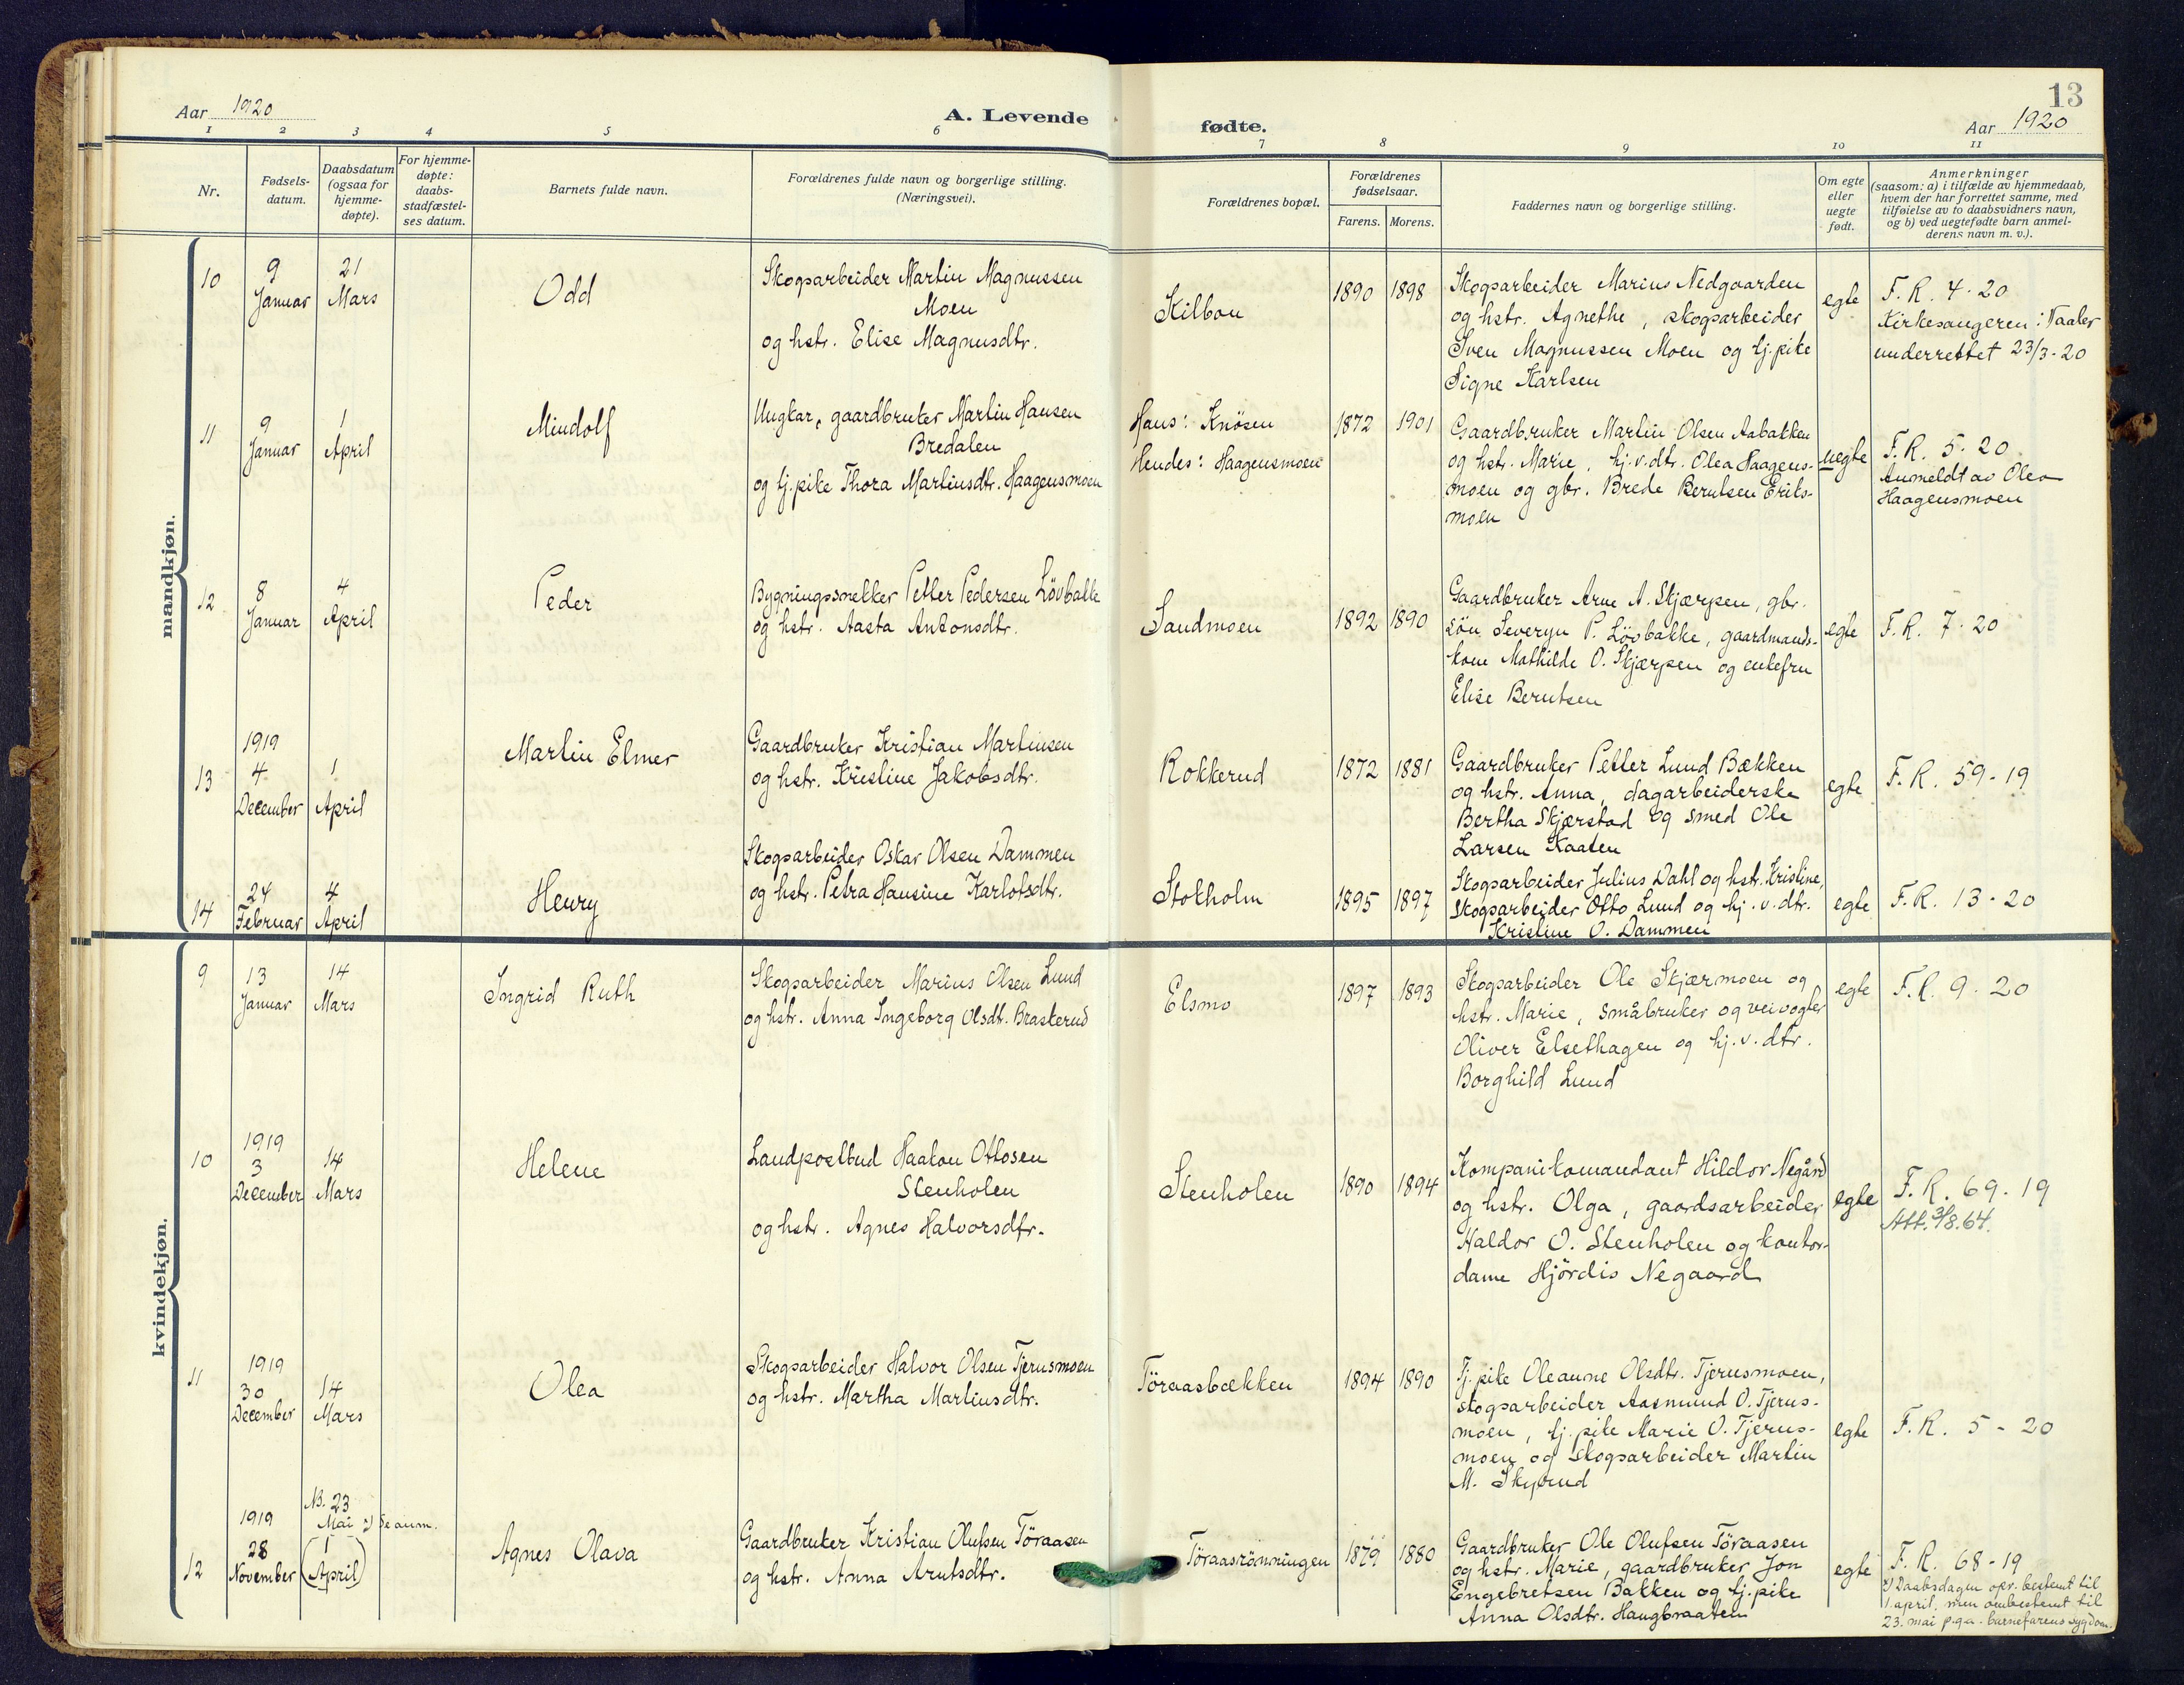 13
Aar 1920
A. Levende
fødte.
Aar 1920
1 2 3 4 5 6 7 8 9 10 11
Nr.
Fødsels-
datum.
Daabsdatum
(ogsaa for
hjemme-
døpte).
For hjemme-
døpte:
daabs-
stadfæstel-
ses datum.
Barnets fulde navn.
Forældrenes fulde navn og borgerlige stilling.
(Næringsvei).
Forældrenes bopæl.
Forældrenes
fødselsaar.
Farens. Morens.
Faddernes navn og borgerlige stilling.
Om egte
eller
uegte
født.
Anmerkninger
(saasom: a) i tilfælde av hjemmedaab,
hvem der har forrettet samme, med
tilføielse av to daabsvidners navn,
og b) ved uegtefødte barn anmel-
derens navn m. v.).
mandkjøn.
10
9
Januar
21
Mars
Odd
Skogsarbeider Martin Magnussen
Moen
og hstr. Elise Magnusdtr.
Kilbon
1890 1898
Skogsarbeider Marius Nedgaarden
og hstr. Agnethe, skogsarbeider
Sven Magnussen Moen og tj.pike
Signe Karlsen
egte
F. R. 4-20
Kirkesangeren i Vaaler
underrettet 23/3-20
11
9
Januar
1
April
Mindolf
Ungkar, gaardbruker Martin Hansen
Bredalen
og tj.pike Thora Martinsdtr. Haagensmoen
Hans: Knösen
Hendes: Haagensmoen
1872 1901
Gaardbruker Martin Olsen Aabakken
og hstr. Marie, hj.v.dtr. Olea Haagens-
moen og gbr. Brede Berntsen Eriks-
moen
uegte
F.R. 5-20
Anmeldt av Olea
Haagensmoen
12
8
Januar
4
April
Peder
Bygningssnekker Petter Pedersen Lövbakke
og hstr. Aasta Antonsdtr.
Sandmoen
1892 1890
Gaardbruker Arne A. Skjærpen, gbr.
sön Severyn P. Lövbakke, gaardmands-
kone Mathilde O. Skjærpen og enkefru
Elise Berntsen
egte
F. R. 7-20
13
1919
4
December
1
April
Martin Elmer
Gaardbruker Kristian Martinsen
og hstr. Kristine Jakobsdtr.
Rokkerud
1872 1881
Gaardbruker Petter Lund Bækken
og hstr. Anna, dagarbeiderske
Bertha Skjærstad og smed Ole
Larsen Kaaten
egte
F. R. 59-19
14
24
Februar
4
April
Henry
Skogsarbeider Oskar Olsen Dammen
og hstr. Petra Hansine Karlotsdtr.
Stokholm
1895 1897
Skogsarbeider Julius Dahl og hstr. Kristine,
skogsarbeider Otto Lund og hj.v.dtr.
Kristine O. Dammen
egte
F. R. 13-20
kvindekjøn.
9
13
Januar
14
Mars
Ingrid Ruth
Skogsarbeider Marius Olsen Lund
og hstr. Anna Ingeborg Olsdt. Braskerud
Elsmo
1897 1893
Skogsarbeider Ole Skjærmoen og
hstr. Marie, småbruker og veivogter
Oliver Elsethagen og hj.v.dtr.
Borghild Lund
egte
F. R. 9-20
10
1919
3
December
14
Mars
Helene
Landpostbud Haakon Ottosen
Stenholen
og hstr. Agnes Halvorsdtr.
Stenholen
1890 1894
Kompanikomandant Hildor Negård
og hstr. Olga, gaardsarbeider
Haldor O. Stenholen og kontor-
dame Hjördis Negaard
egte
F. R. 69-19
Att. 3/8.64.
11
1919
30
December
14
Mars
Olea
Skogsarbeider Halvor Olsen Tjerusmoen
og hstr. Martha Martinsdtr.
Töraasbækken
1894 1890
Tj.pike Oleanne Olsdtr. Tjerusmoen,
skogsarbeider Aasmund O. Tjerus-
moen, tj.pike Marie O. Tjerus-
moen og skogsarbeider Martin
M. Skyrud
egte
F. R. 5-20
12
1919
28
November
NB. 23
Mai x) Se anm.
(1
April)
Agnes Olava
Gaardbruker Kristian Olufsen Töraasen
og hstr. Anna Arntsdtr.
Töraasrönningen
1879 1880
Gaardbruker Ole Olufsen Töraasen
og hstr. Marie, gaardbruker Jon
Engebretsen Bakken og tj.pike
Anna Olsdtr. Haugbraaten
egte
F. R. 68-19
x) Daabsdagen opr. bestemt til
1. april, men ombestemt til
23. mai p.g.a. barnefarens sygdom.